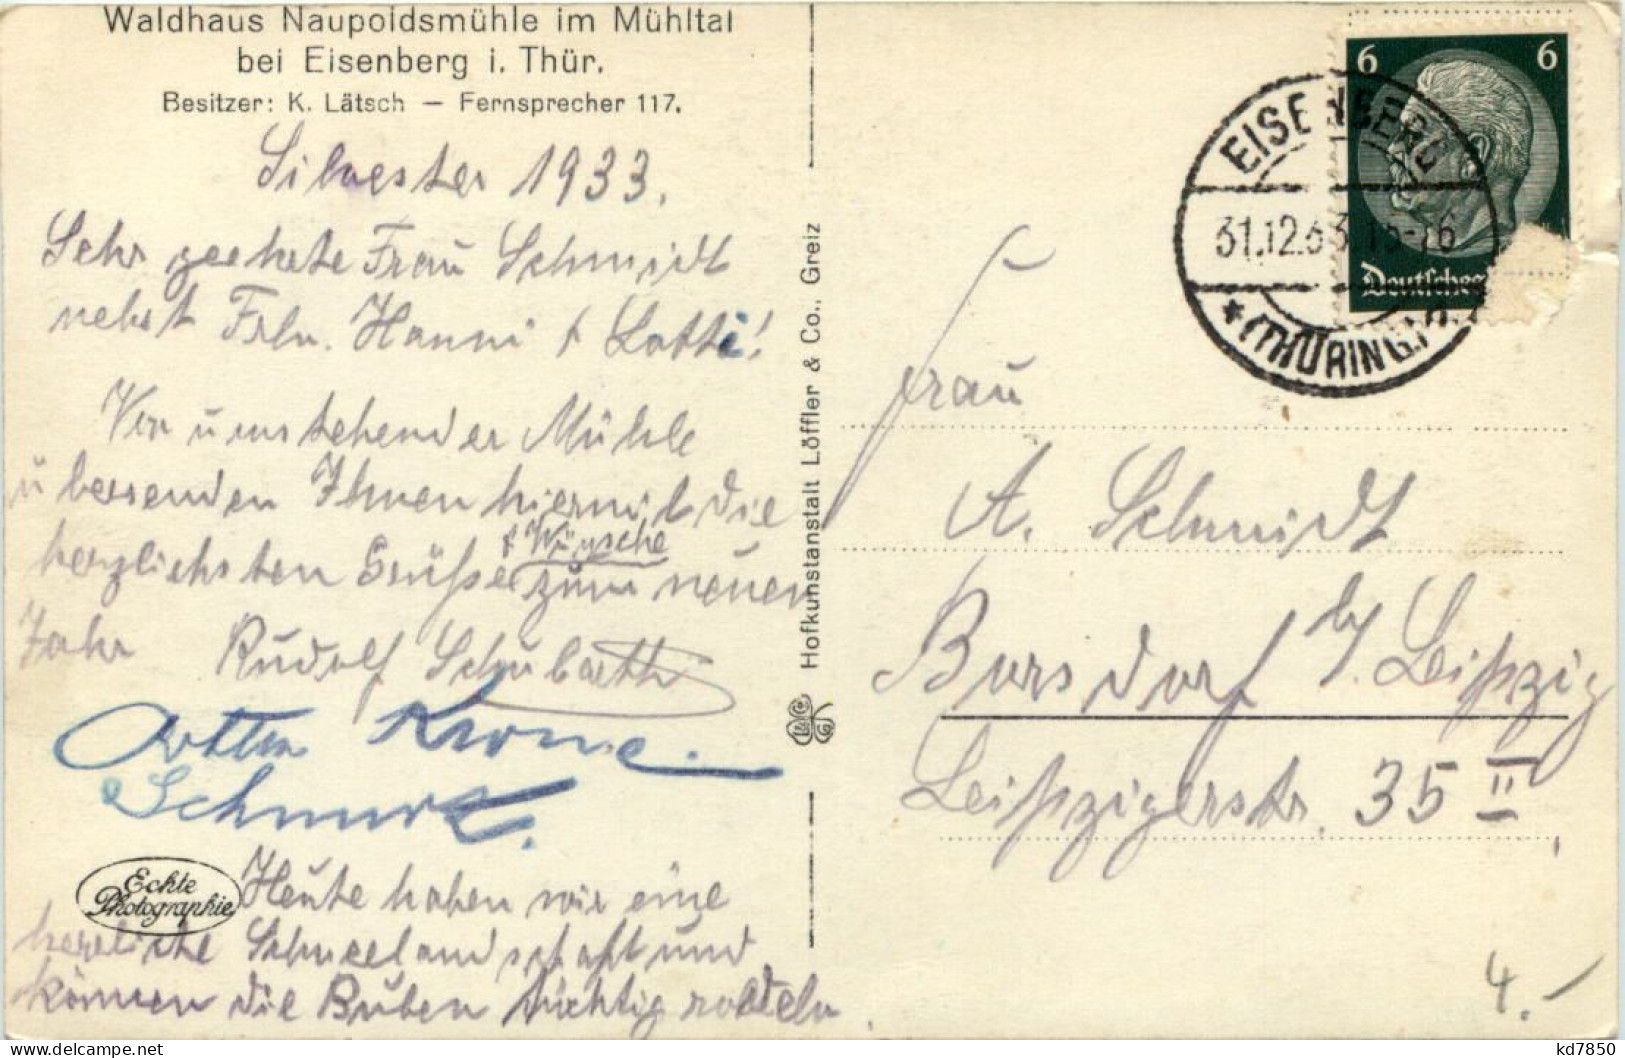 Waldhaus Naupoldsmühle im Mühltal
bei Eisenberg i. Thür.
Besitzer: K. Lätsch — Fernsprecher 117.
Silvester 1933.
Sehr geehrte Frau Schmidt
nebst Frln. Hanni & Lotti!
Von umstehender Mühle
übersenden Ihnen hiermit die
herzlichsten Grüße & Wünsche zum neuen
Jahr Rudolf Schubarth
Krone.
Echte
Photographie
Heute haben wir eine
herrliche Schneelandschaft und
können die Buben tüchtig rodeln.
Hofkunstanstalt Löffler & Co., Greiz
6 6
Deutsches
EISENBERG
31.12.33 15-16
* (THÜRING.)
Frau
A. Schmidt
Borsdorf b/ Leipzig
Leipzigerstr. 35 II
4.-
kd7850